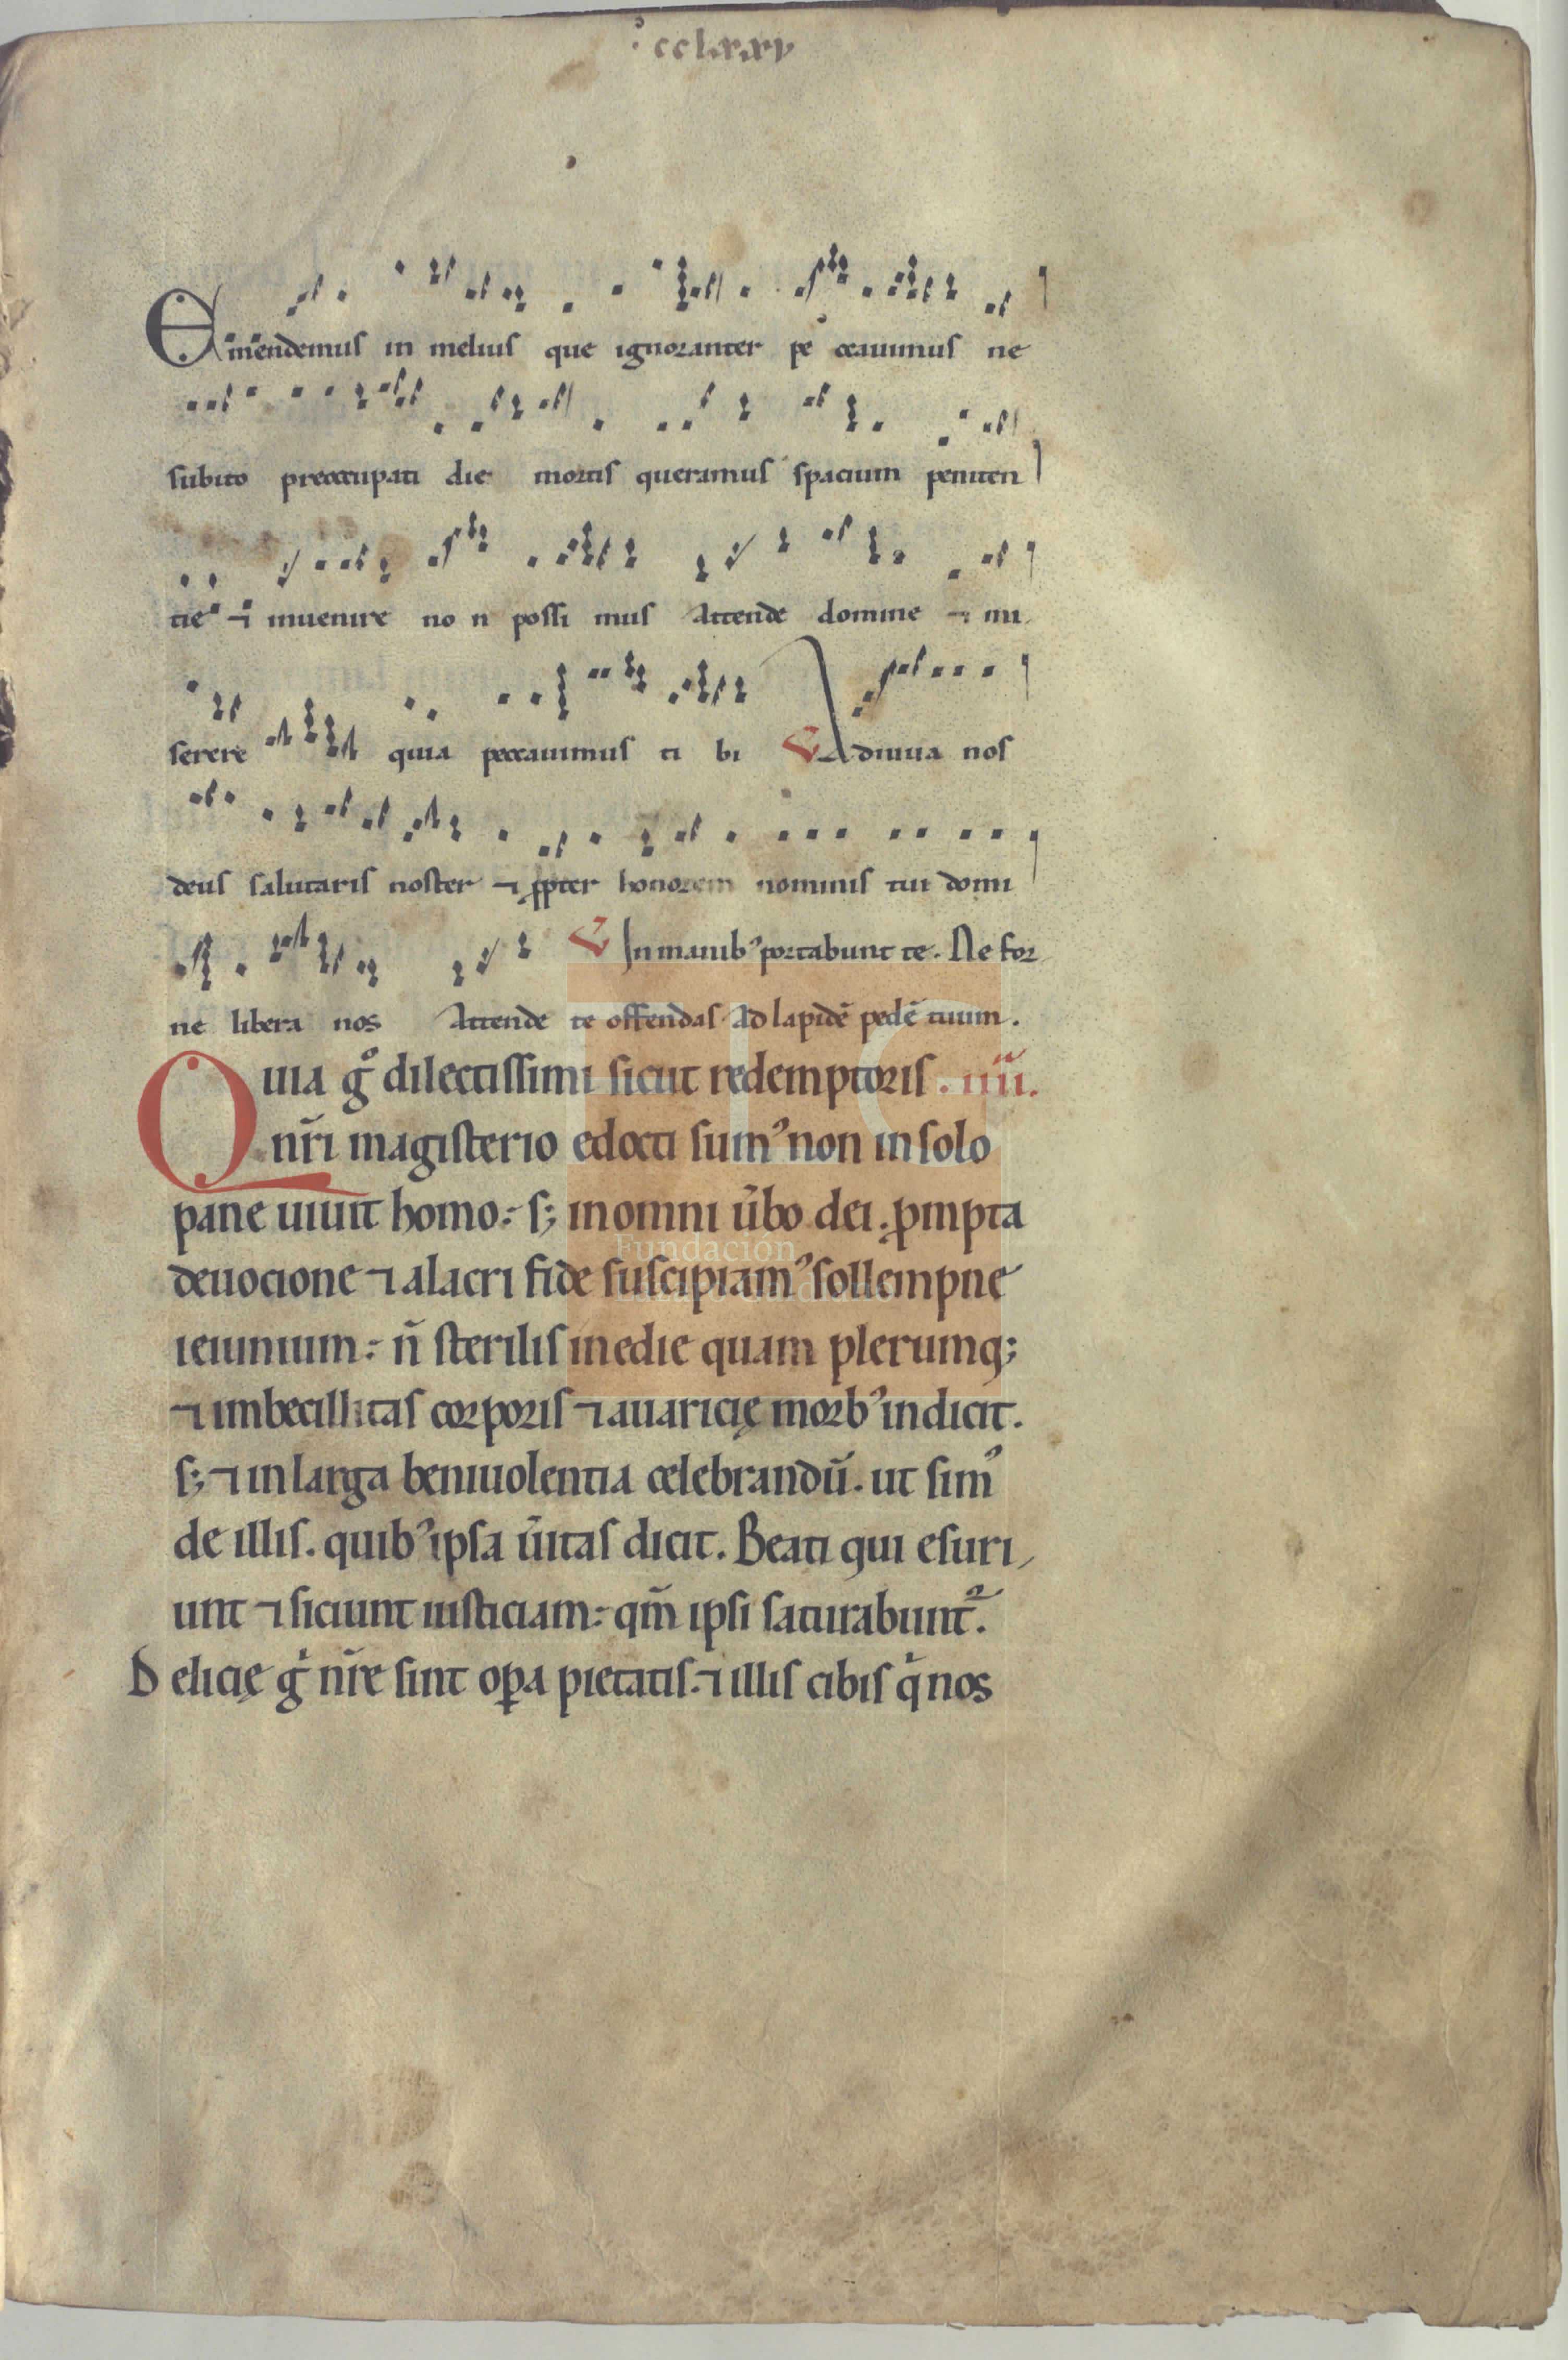 cclxxxv
Emendemus in melius que ignoranter pe ccauimus ne
subito preoccupati die mortis queramus spacium peniten
tie ⁊ inuenire no n possi mus Attende domine ⁊ mi
serere quia peccauimus ti bi V Adiuua nos
deus salutaris noster ⁊ ꝓpter honorem nominis tui domi
ne libera nos Attende V In manibꝰ portabunt te. Ne for
te offendas ad lapidē pedē tuum.
Quia gͦ dilectissimi sicut redemptoris . iiii.
nr̄i magisterio edocti sumꝰ non in solo
pane uiuit homo: s; in omni u̅bo dei. ꝓmpta
deuocione ⁊ alacri fide suscipiamꝰ sollempne
ieiunium: n̄ sterilis inedie quam plerumq;
⁊ imbecillitas corporis ⁊ auaricię morbꝰ indicit.
s; ⁊ in larga beniuolentia celebrandū. ut simꝰ
de illis. quibꝰ ipsa u̅itas dicit. Beati qui esuri
unt ⁊ siciunt iusticiam: qm̄ ipsi saturabunt᷑.
Delicię gͦ nr̄e sint oꝑa pietatis. ⁊ illis cibis qͥ nos
Fundación